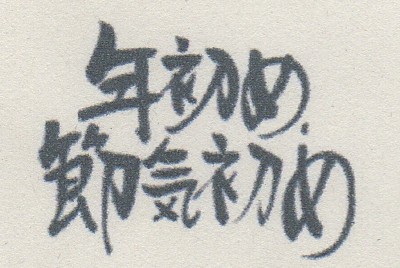 年初め
節気初め